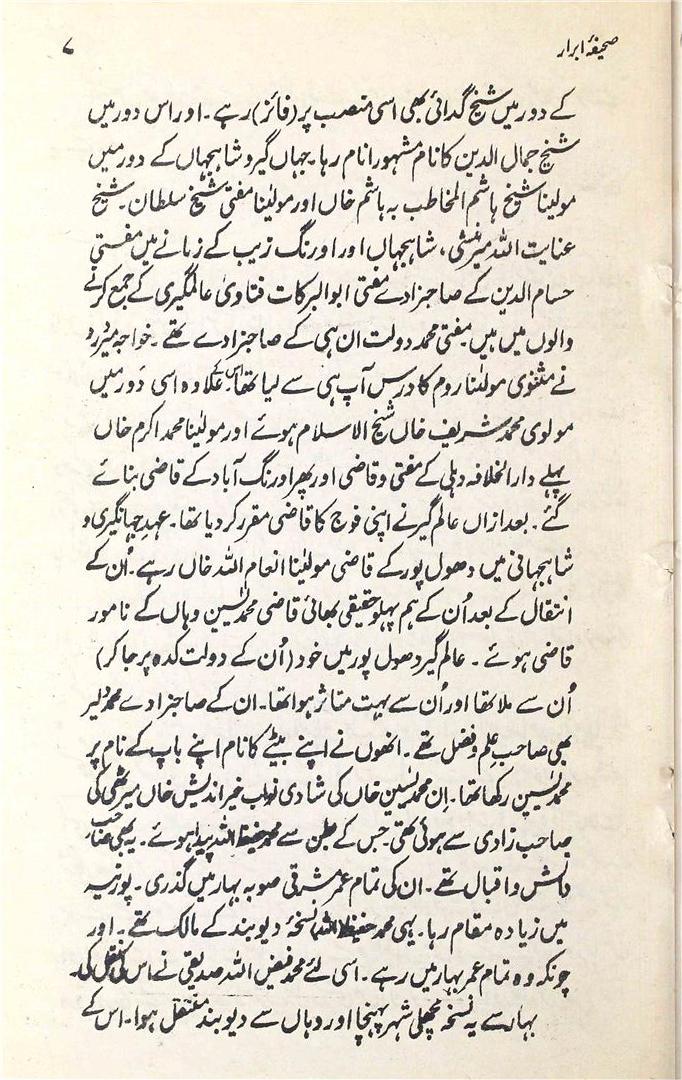 صحیفۂ ابرار
۷
کے دور میں شیخ گدائی بھی اسی منصب پر (فائز) رہے۔ اور اس دور میں
شیخ جمال الدین کا نام مشہور انام رہا۔ جہاں گیر و شاہجہاں کے دور میں
مولیٰنا شیخ ہاشم المخاطب بہ ہاشم خاں اور مولیٰنا مفتی شیخ سلطان۔ شیخ
عنایت اللہ میر منشی، شاہجہاں اور اورنگ زیب کے زمانے میں مفتی
حسام الدین کے صاحبزادے مفتی ابوالبرکات فتاویٰ عالمگیری کے جمع کرنے
والوں میں ہیں۔ مفتی محمد دولت ان ہی کے صاحبزادے تھے۔ خواجہ میر درد
نے مثنوی مولیٰنا روم کا درس آپ ہی سے لیا تھا۔ اس کے علاوہ اسی دَور میں
مولوی محمد شریف خاں شیخ الاسلام ہوئے اور مولیٰنا محمد اکرم خاں
پہلے دارالخلافہ دہلی کے مفتی و قاضی اور پھر اورنگ آباد کے قاضی بنائے
گئے۔ بعد ازاں عالم گیر نے اپنی فوج کا قاضی مقرر کر دیا تھا۔ عہدِ جہانگیری و
شاہجہانی میں دھول پور کے قاضی مولیٰنا انعام اللہ خاں رہے۔ اُن کے
انتقال کے بعد اُن کے ہم پہلو حقیقی بھائی قاضی محمد یٰسین وہاں کے نامور
قاضی ہوئے۔ عالم گیر دھول پور میں خود (اُن کے دولت کدہ پر جا کر)
اُن سے ملا تھا اور اُن سے بہت متاثر ہوا تھا۔ ان کے صاحبزادے محمد دلیر
بھی صاحبِ علم و فضل تھے۔ انھوں نے اپنے بیٹے کا نام اپنے باپ کے نام پر
محمد یٰسین رکھا تھا۔ اِن محمد یٰسین خاں کی شادی نواب خیر اندیش خاں میرٹھی کی
صاحب زادی سے ہوئی تھی جس کے بطن سے محمد حفیظ اللہ پیدا ہوئے۔ یہ بھی صاحب
دانش و اقبال تھے۔ ان کی تمام عمر مشرقی صوبہ بہار میں گذری۔ پورنیہ
میں زیادہ مقام رہا۔ یہی محمد حفیظ اللہ نسخۂ دیوبند کے مالک تھے۔ اور
چونکہ وہ تمام عمر بہار میں رہے۔ اسی لئے محمد فیض اللہ صدیقی نے اس کی نقل کی۔
بہار سے یہ نسخہ مچھلی شہر پہنچا اور وہاں سے دیوبند منتقل ہوا۔ اس کے